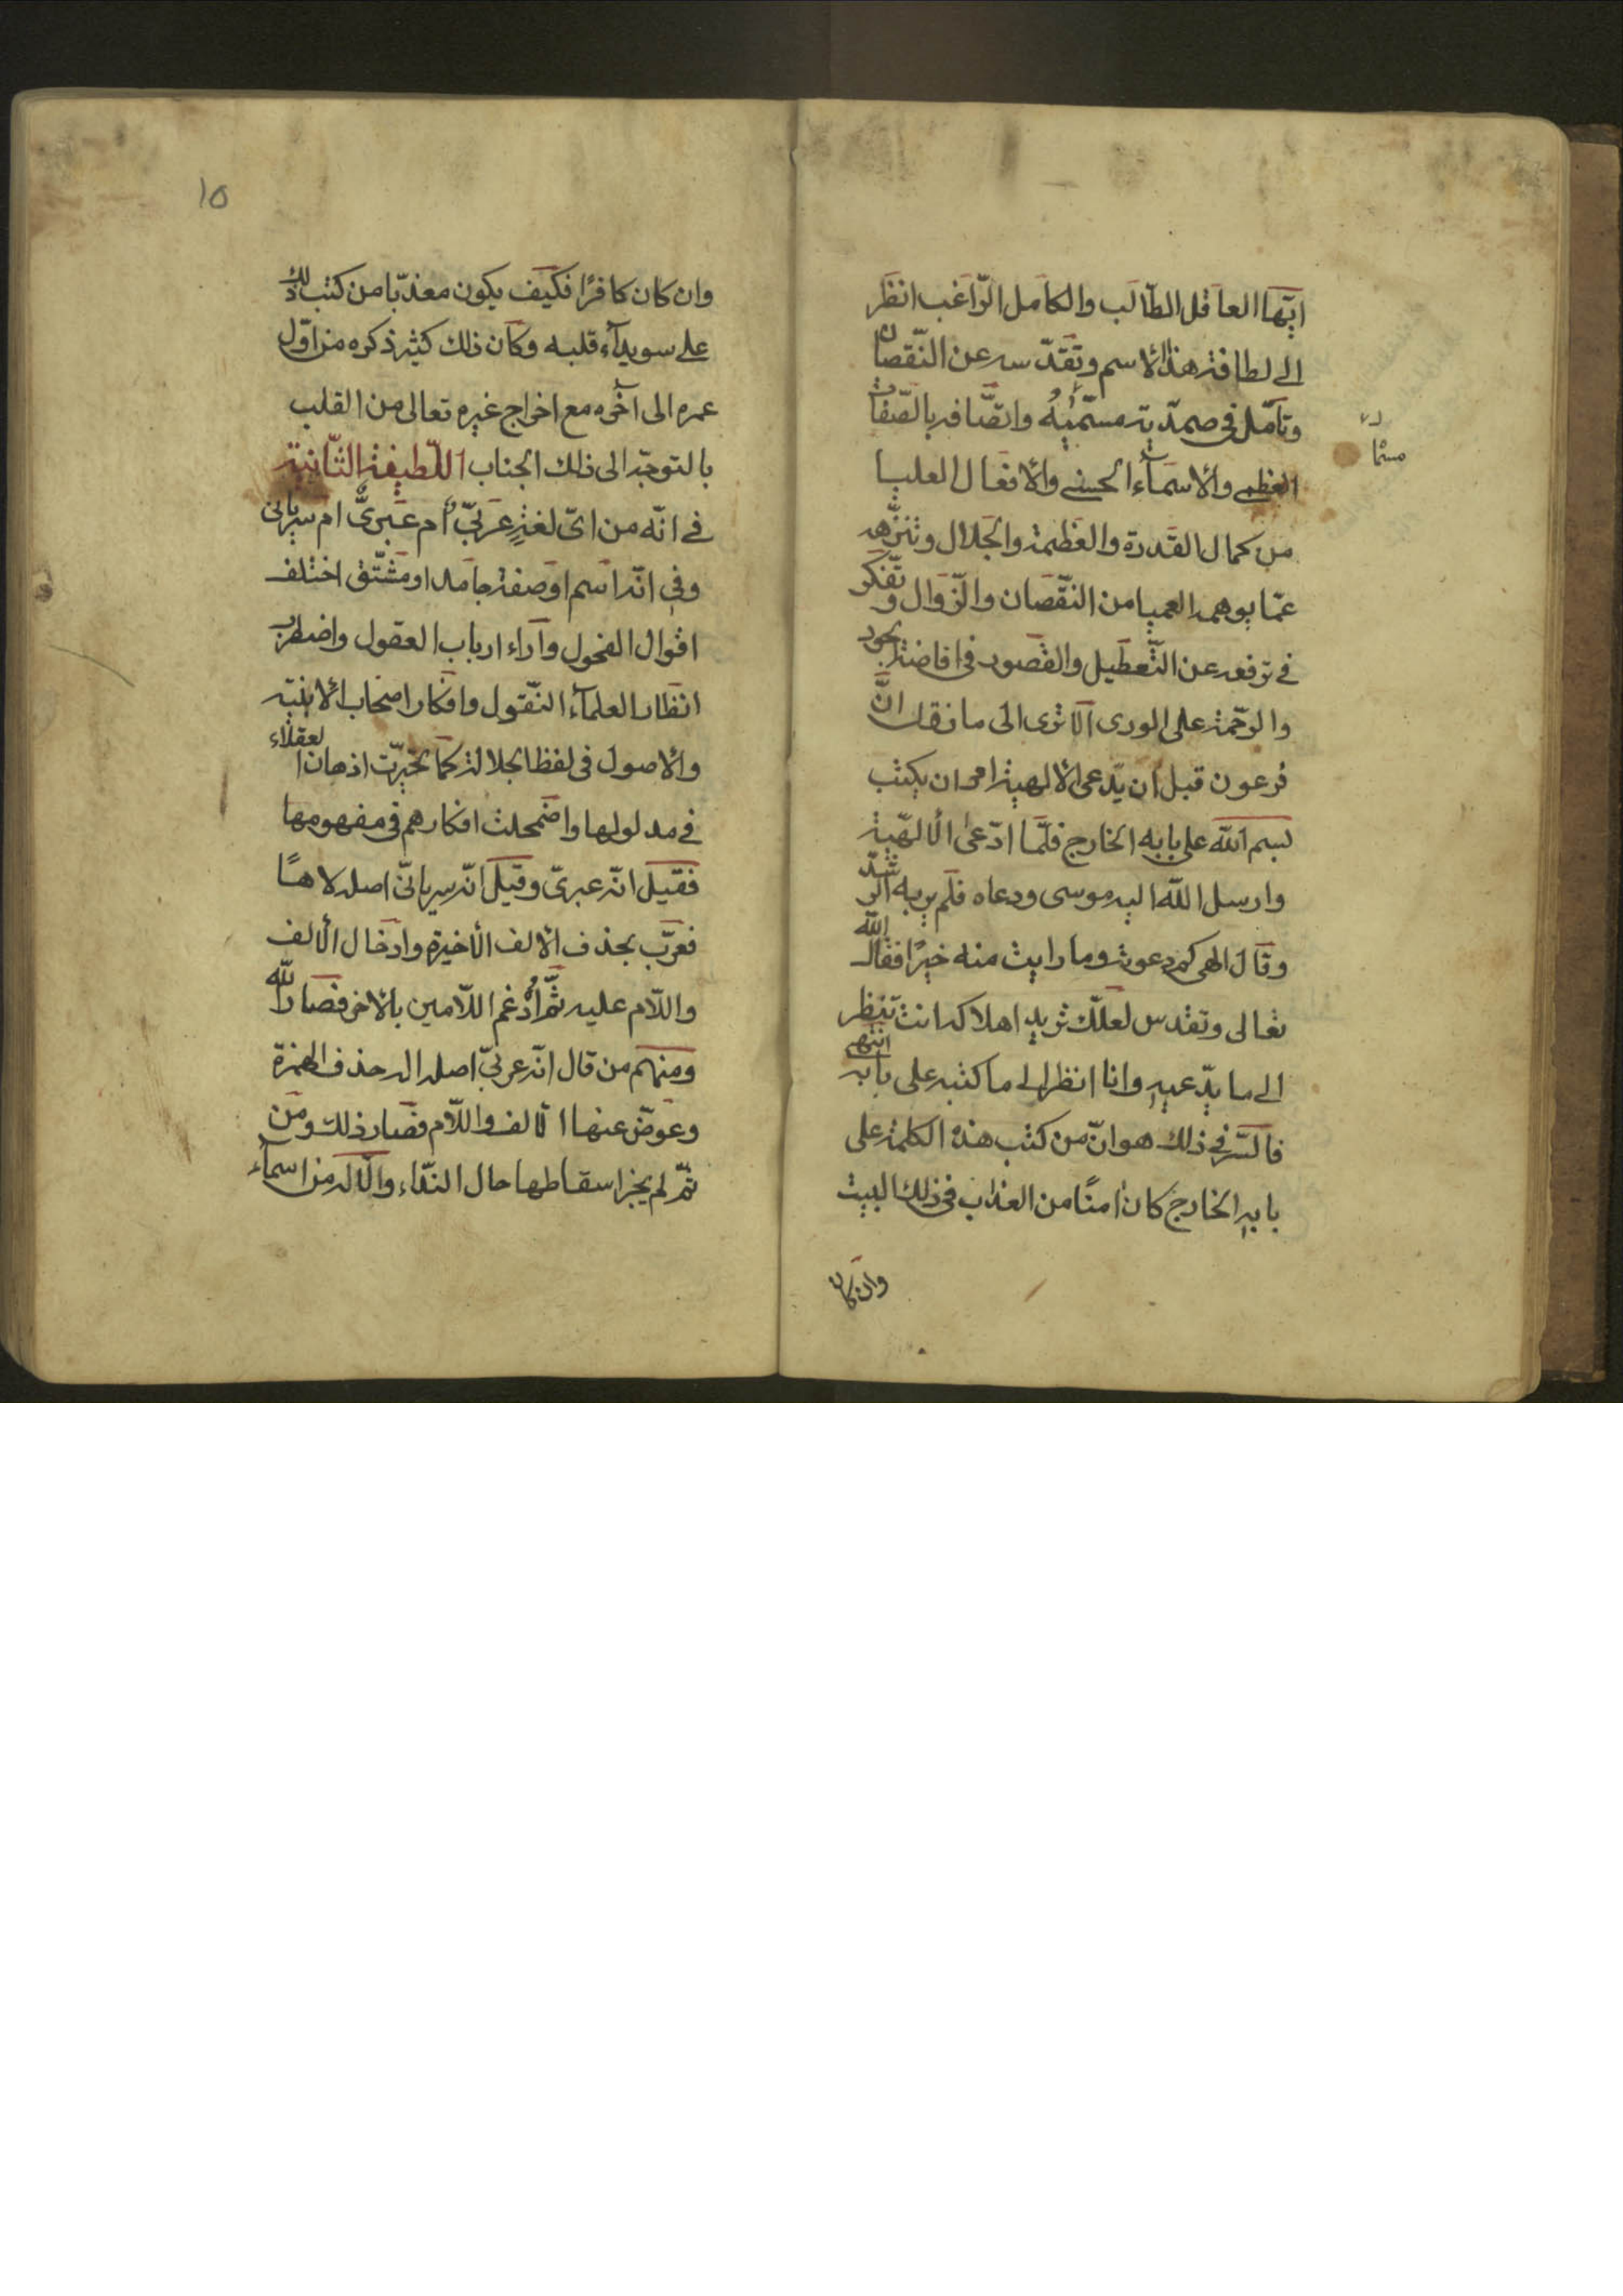 ايّها العاقل الطالب والكامل الرّاغب انظر
الى لطافة هذا الاسم وتقدّسه عن النّقصان
وتأمّل في صمدّيته مسمّيه واتّصافه بالصّفات
مسمّا
العظمى والاسمآء الحسنى والافعال العليا
من كمال القدرة والعظمة والجلال وتنزّهه
عمّا يوهمه العميا من النّقصان والزّوال وتفكّر
في ترفعه عن التّعطيل والقصور في افاضة الجود
والرّحمة على الورى الا ترى الى ما نقل انّ
فرعون قبل ان يدّعى الالهية امر ان يكتب
بسم الله على بابه الخارج فلمّا ادّعى الالهيّة
وارسل الله اليه موسى ودعاه فلم ير به الرّشد
وقال الهى كم دعوته وما رايت منه خيرًا فقال الله
تعالى وتقدس لعلّك تريد اهلاكه انت تنظر
الى ما يدّعيه وانا انظر الى ما كتبه على بابه انتهى
فالسّر في ذلك هو انّ من كتب هذه الكلمة على
بابه الخارج كان امنًا من العذاب في ذلك البيت
وان كان
١٥
وان كان كافرًا فكيف يكون معذّبا من كتب ذلك
على سويدآء قلبه وكان ذلك كثير ذكره من اوّل
عمره الى آخره مع اخراج غيره تعالى من القلب
بالتوجّه الى ذلك الجناب اللّطيفة الثّانية
في انّه من اىّ لغةٍ عربىّ ام عبرىّ ام سريانى
وفي انّه اسم او صفة جامد او مشتّق اختلف
اقوال الفحول وآراء ارباب العقول واضطرب
انظار العلمآء النّقول وافكار اصحاب الابنيّة
والاصول في لفظ الجلالة كما تحيّرت اذهان العقلاء
في مدلولها واضمحلت افكارهم في مفهومها
فقيل انّه عبرىّ وقيل انّه سريانىّ اصله لاهًا
فعرّب بحذف الالف الاخيرة وادخال الالف
واللّام عليه ثمّ اُدغم اللّامين بالاخر فصار الله
ومنهم من قال انّه عربىّ اصله اله حذف الهمزة
وعوّض عنها الالف واللّام فصار ذلك ومن
ثمّ لم يجز اسقاطها حال النّداء والاله من اسمآء